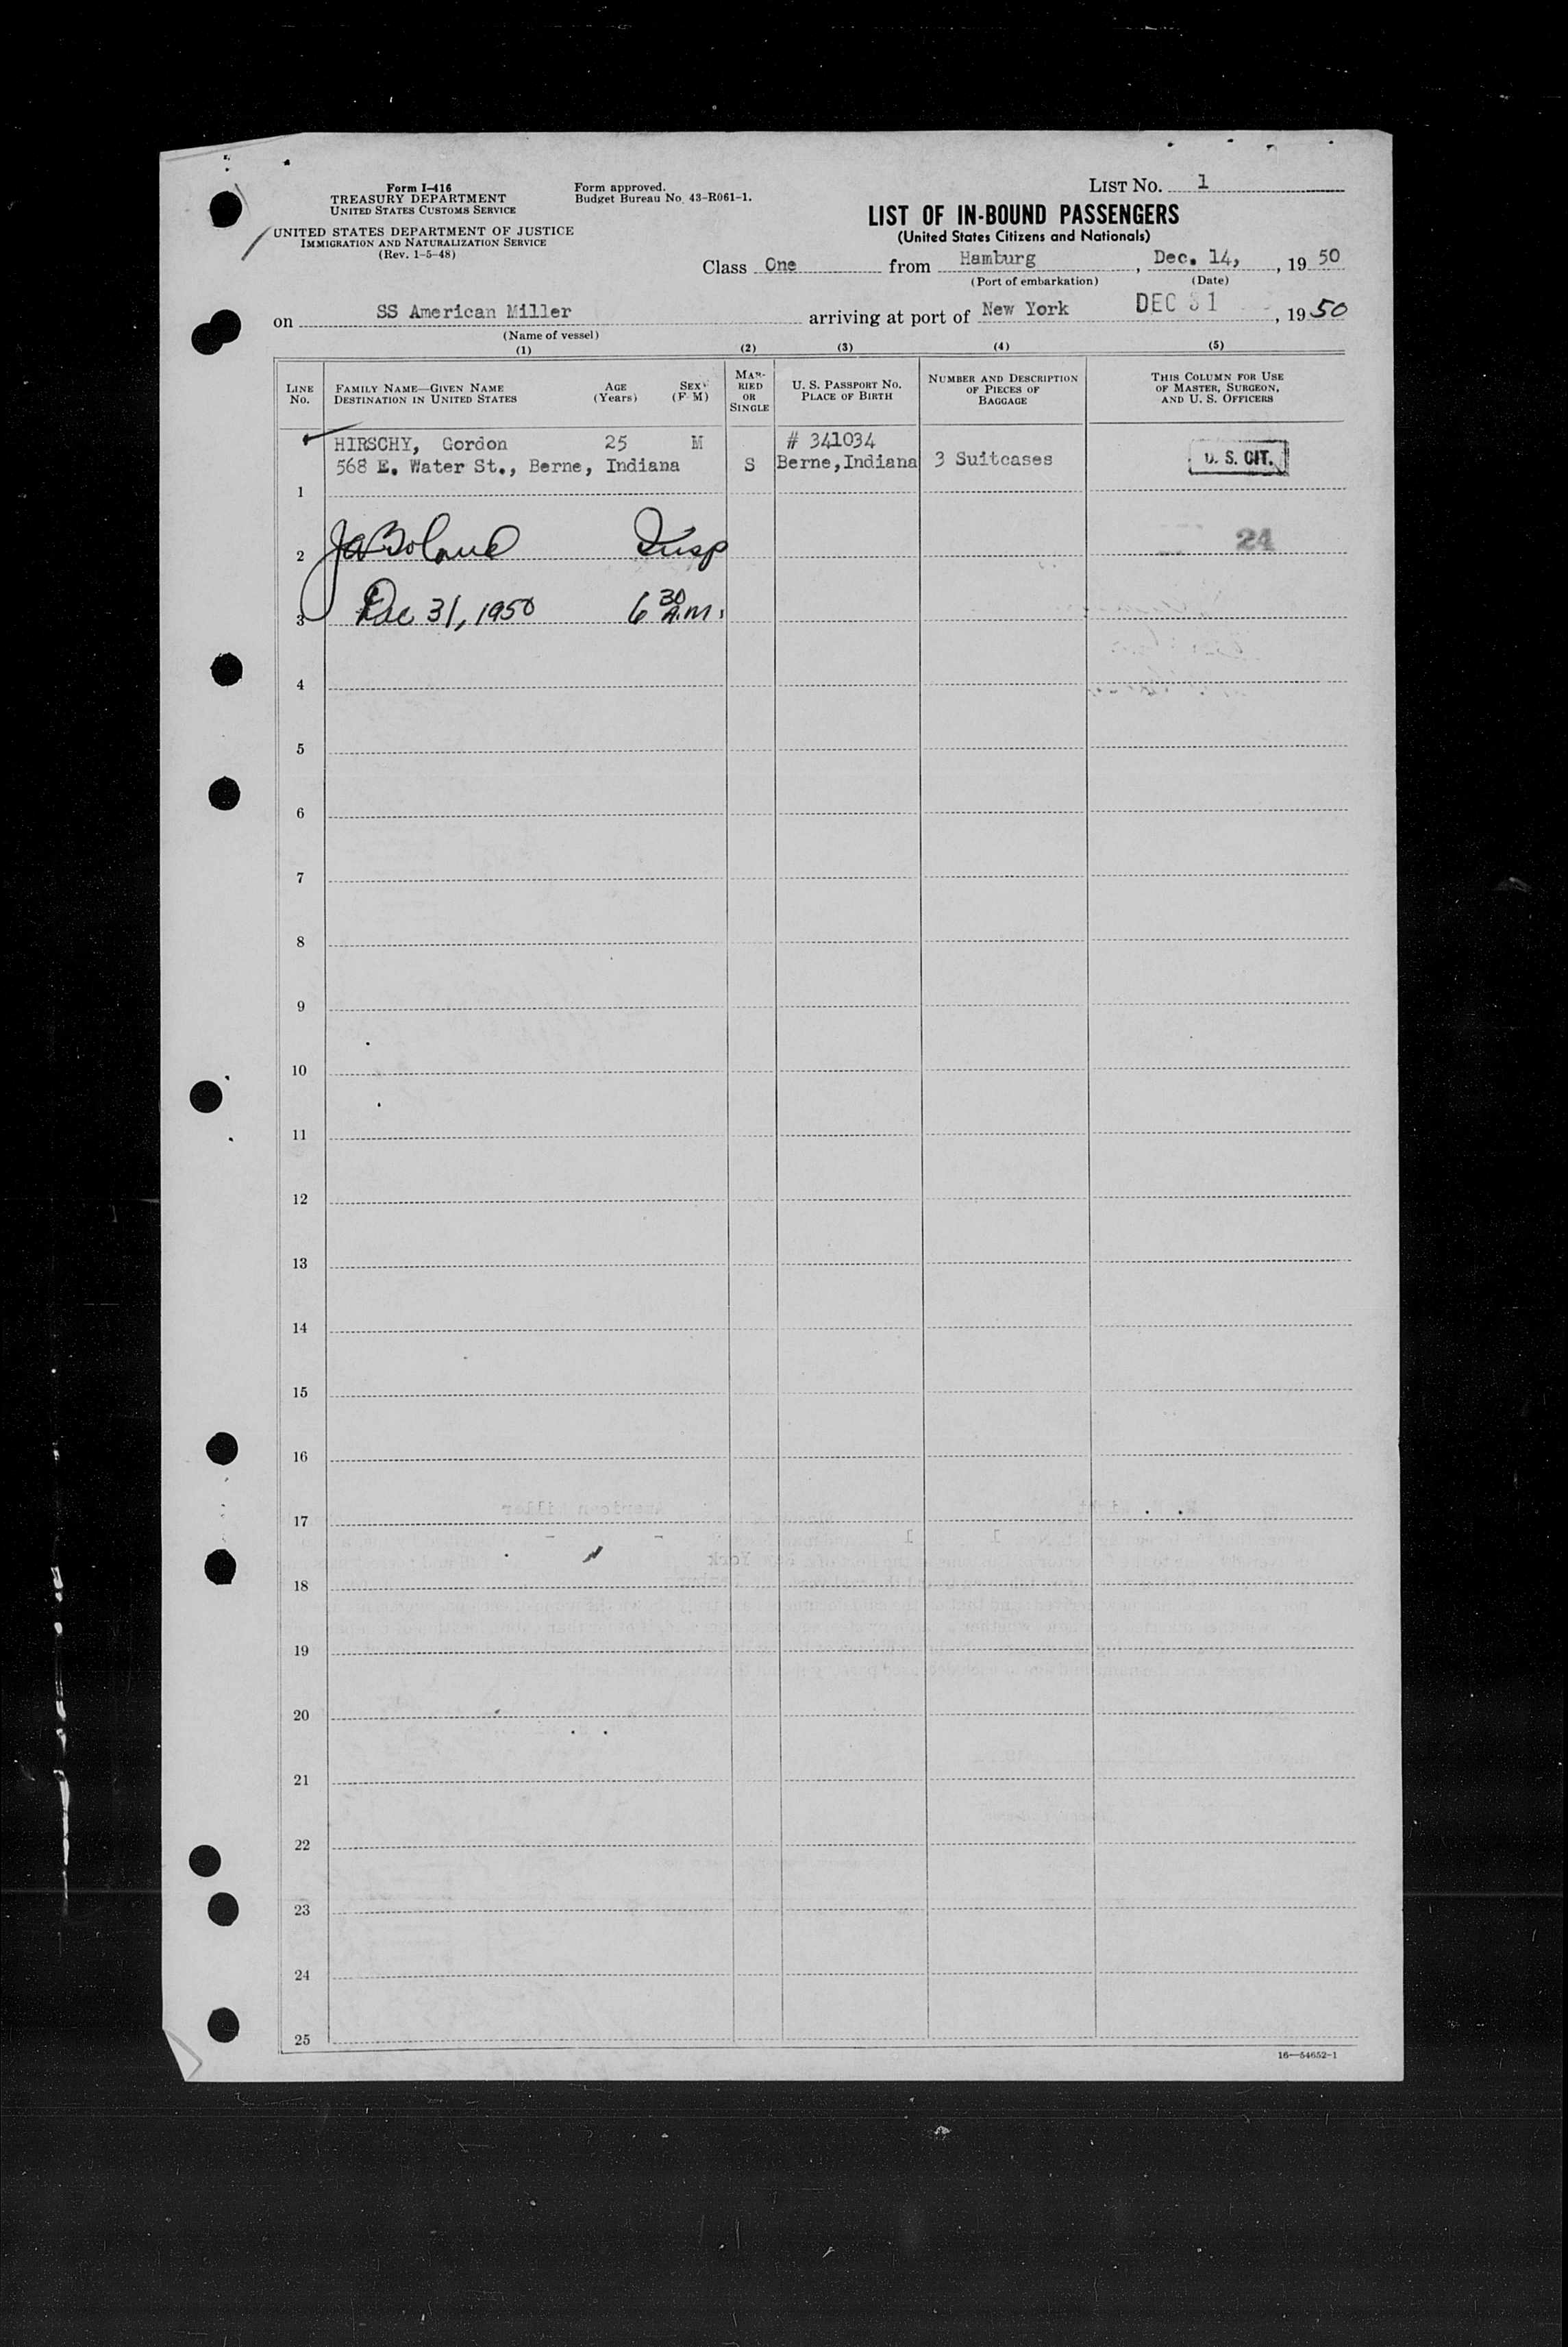 Form I-416
TREASURY DEPARTMENT
UNITED STATES CUSTOMS SERVICE
UNITED STATES DEPARTMENT OF JUSTICE
IMMIGRATION AND NATURALIZATION SERVICE
(Rev. 1-5-48)
Form approved.
Budget Bureau No. 43-R061-1.
LIST No. 1
LIST OF IN-BOUND PASSENGERS
(United States Citizens and Nationals)
Class One from Hamburg, Dec. 14, , 19 50
(Port of embarkation) (Date)
on SS American Miller arriving at port of New York DEC 31 , 19 50
(Name of vessel)
(1) (2) (3) (4) (5)
LINE No.
FAMILY NAME—GIVEN NAME
DESTINATION IN UNITED STATES
AGE (Years)
SEX (F-M)
MARRIED OR SINGLE
U. S. PASSPORT No.
PLACE OF BIRTH
NUMBER AND DESCRIPTION OF PIECES OF BAGGAGE
THIS COLUMN FOR USE OF MASTER, SURGEON, AND U. S. OFFICERS
HIRSCHY, Gordon 25 M # 341034
568 E. Water St., Berne, Indiana S Berne,Indiana 3 Suitcases U. S. CIT.
1
2 JABoland Insp 24
3 Dec 31, 1950 6 30 A.M.
4
5
6
7
8
9
10
11
12
13
14
15
16
17
18
19
20
21
22
23
24
25
16—54652-1